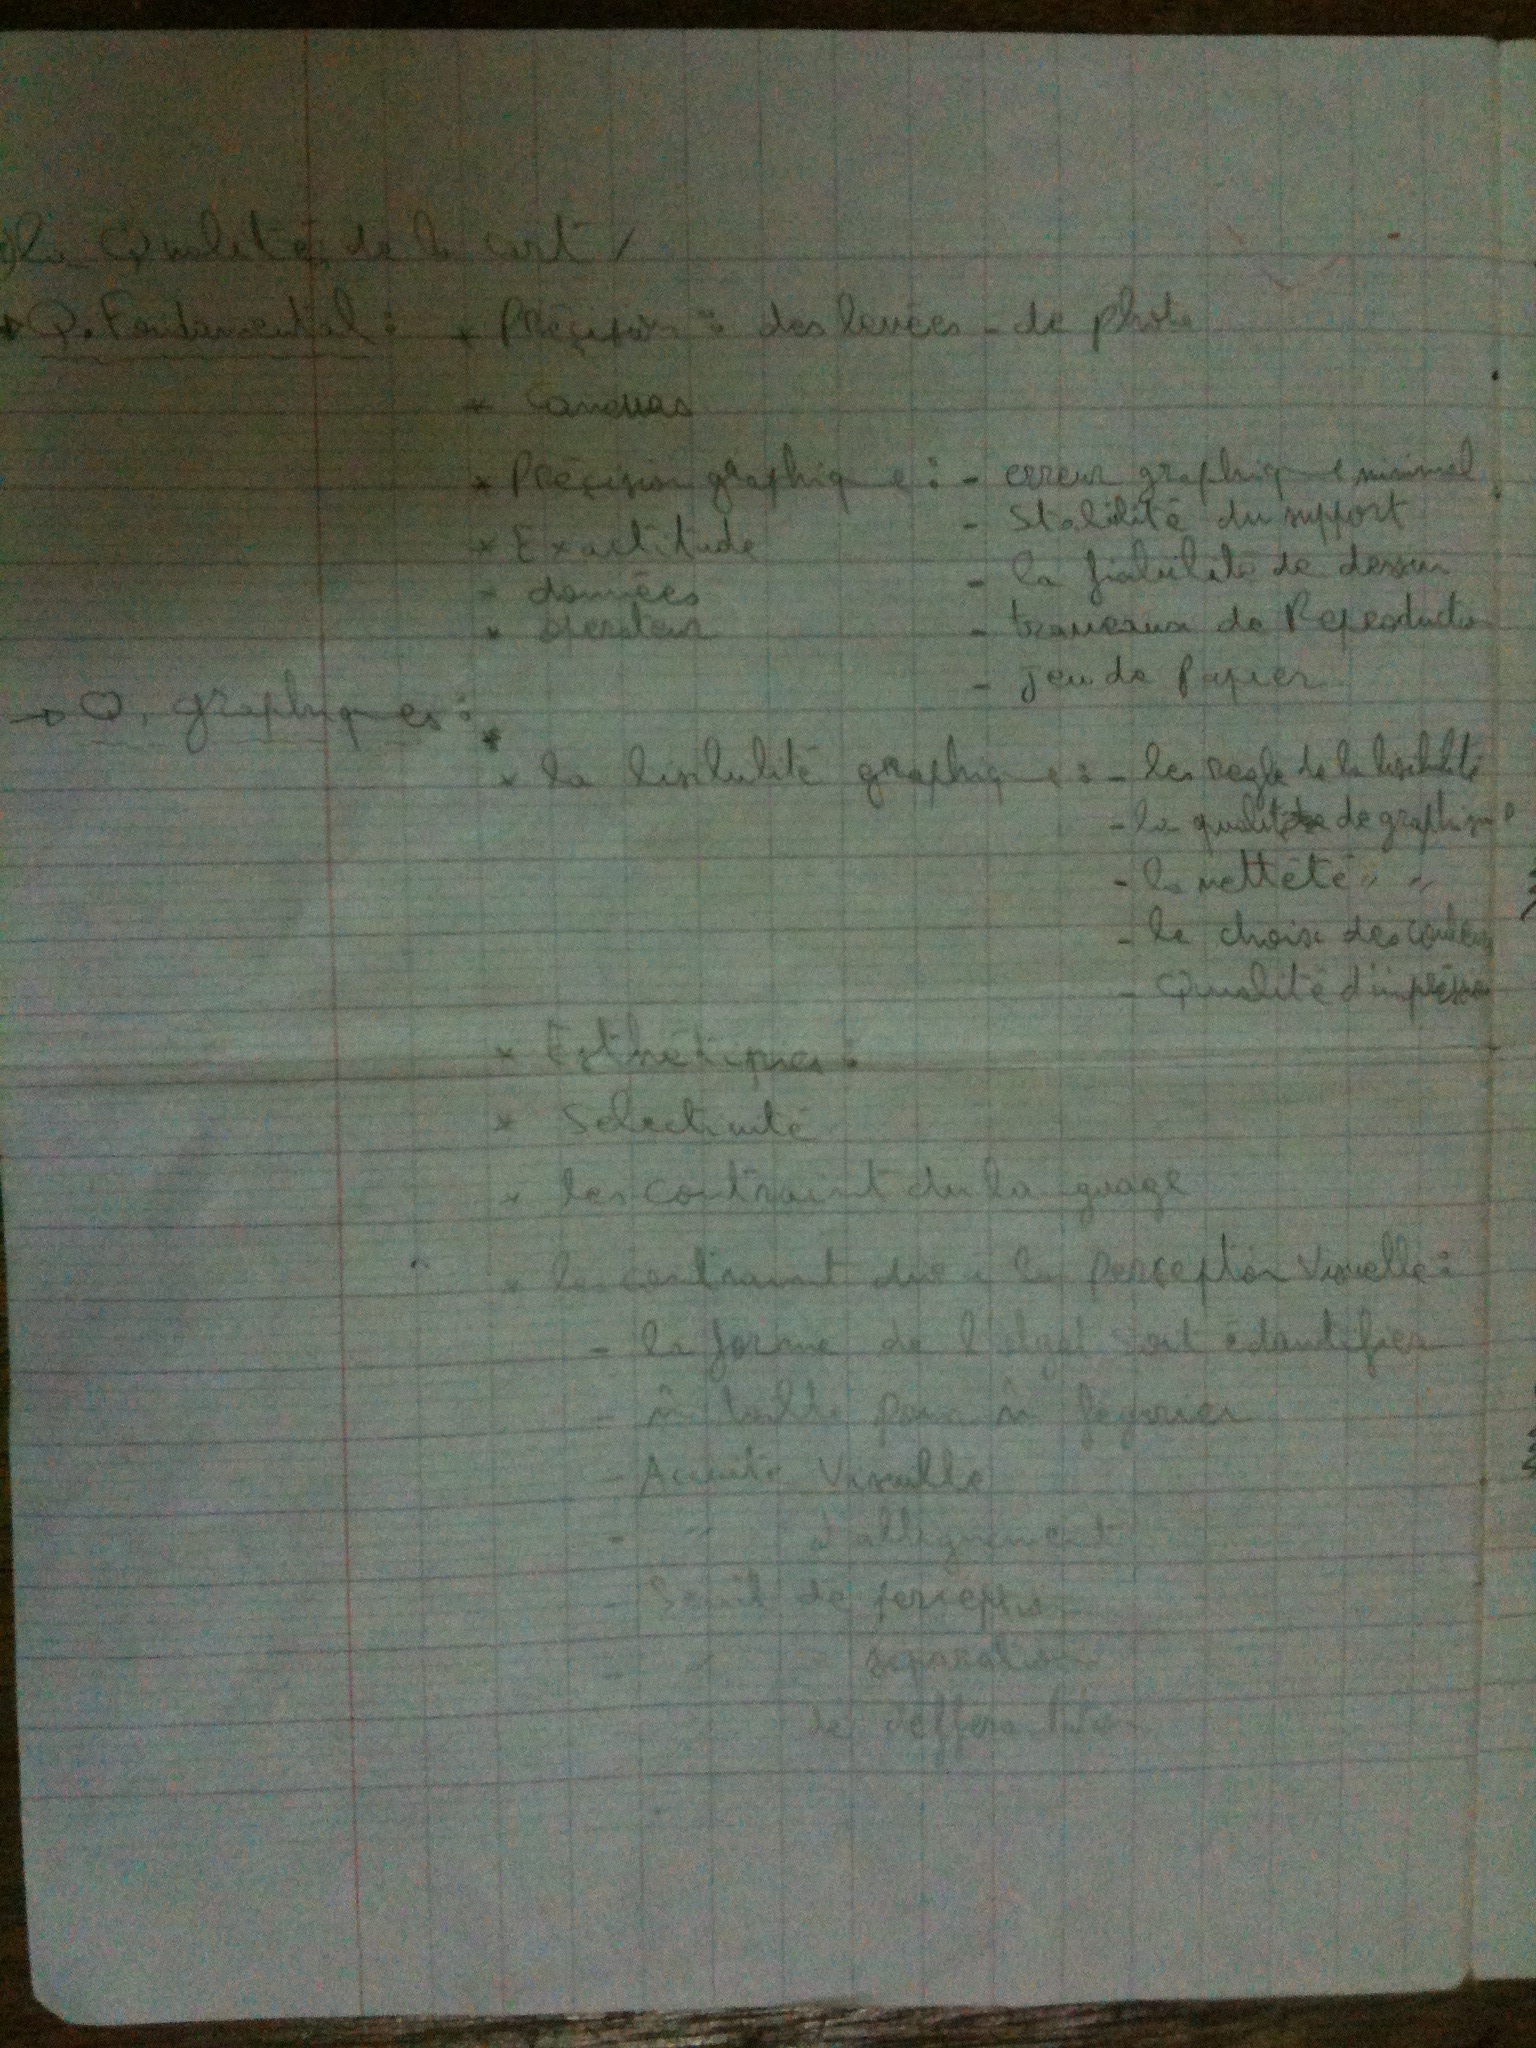 la Qualité de la cart /
→ Q. Fondamential : * Précision : des levées - de photo
* Canevas
* Précision graphique : - erreur graphique minimal
* Exactitude - Stabilité du support
- données - la fiabilité de dessin
* operateur - travaux de Reproduction
- jeu de Papier
→ Q. graphiques :
* la lisibilité graphique : - les regle de la lisibilité
- la qualité de graphisme
- la nettété " "
- le choix des couleurs
- Qualité d'impréssion
* Esthétiques :
* Selectivité
* les contraint du la guage
* les contraint due à la perçeption Visuelle :
- la forme de l'objet soit édantifier
- m̂ taille pour m̂
- Acuité Visuelle
- " d'allignement
- Seuil de perception
- " " separation
de differentiation